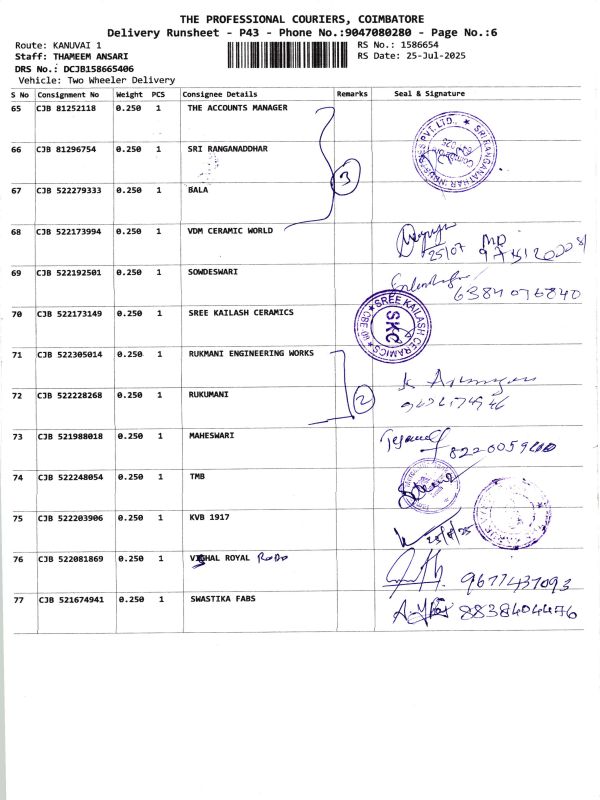 THE PROFESSIONAL COURIERS, COIMBATORE
Delivery Runsheet - P43 - Phone No.:9047080280 - Page No.:6
Route: KANUVAI 1 RS No.: 1586654
Staff: THAMEEM ANSARI RS Date: 25-Jul-2025
DRS No.: DCJB158665406
Vehicle: Two Wheeler Delivery
S No Consignment No Weight PCS Consignee Details Remarks Seal & Signature
65 CJB 81252118 0.250 1 THE ACCOUNTS MANAGER
66 CJB 81296754 0.250 1 SRI RANGANADDHAR
3
67 CJB 522279333 0.250 1 BALA
68 CJB 522173994 0.250 1 VDM CERAMIC WORLD
25/07
69 CJB 522192501 0.250 1 SOWDESWARI
6384076840
70 CJB 522173149 0.250 1 SREE KAILASH CERAMICS
SREE KAILASH CERAMICS
SKC
71 CJB 522305014 0.250 1 RUKMANI ENGINEERING WORKS
72 CJB 522228268 0.250 1 RUKUMANI
2
73 CJB 521988018 0.250 1 MAHESWARI
74 CJB 522248054 0.250 1 TMB
75 CJB 522203906 0.250 1 KVB 1917
76 CJB 522081869 0.250 1 VISHAL ROYAL
9677437093
77 CJB 521674941 0.250 1 SWASTIKA FABS
8838404476